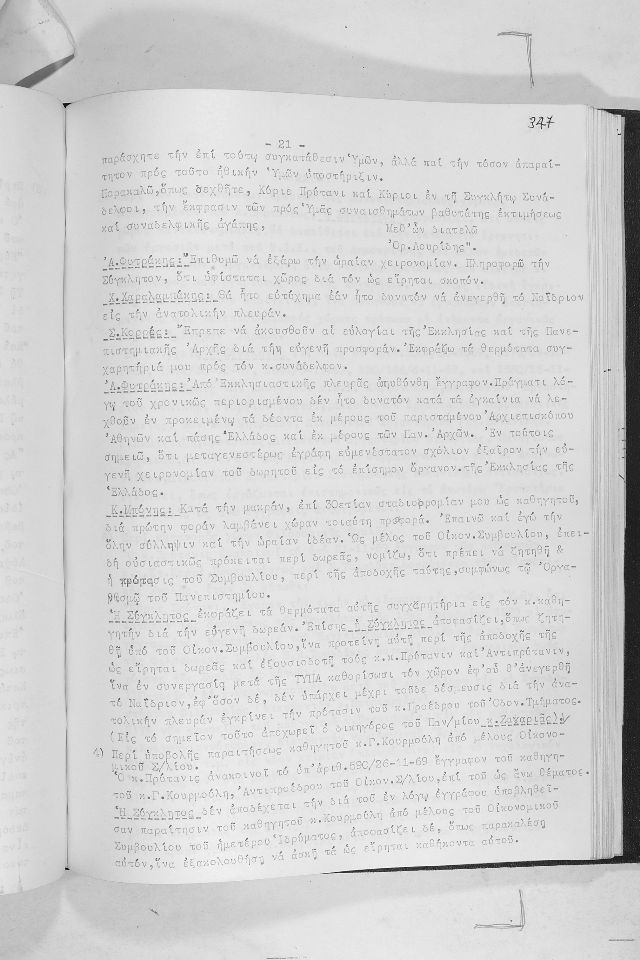 347
- 21 -
παράσχητε τήν ἐπί τούτῳ συγκατάθεσιν Ὑμῶν, ἀλλά καί τήν τόσον ἀπαραί-
τητον πρός τοῦτο ἠθικήν Ὑμῶν ὑποστήριξιν.
Παρακαλῶ, ὅπως δεχθῆτε, Κύριε Πρύτανι καί Κύριοι ἐν τῇ Συγκλήτῳ Συνά-
δελφοι, τήν ἔκφρασιν τῶν πρός Ὑμᾶς συναισθημάτων βαθυτάτης ἐκτιμήσεως
καί συναδελφικῆς ἀγάπης, Μεθ'ὧν διατελῶ
Ὀρ.Λουρίδης".
Ἀ.Φυτράκης: Ἐπιθυμῶ νά ἐξάρω τήν ὡραίαν χειρονομίαν. Πληροφορῶ τήν
Σύγκλητον, ὅτι ὑφίσταται χῶρος διά τόν ὡς εἴρηται σκοπόν.
Χ.Χαραλαμπάκης: Θά ἦτο εὐτύχημα ἐάν ἦτο δυνατόν νά ἀνεγερθῇ τό Ναΐδριον
εἰς τήν ἀνατολικήν πλευράν.
Σ.Κορρές: Ἔπρεπε νά ἀκουσθοῦν αἱ εὐλογίαι τῆς Ἐκκλησίας καί τῆς Πανε-
πιστημιακῆς Ἀρχῆς διά τήν εὐγενῆ προσφοράν. Ἐκφράζω τά θερμότατα συγ-
χαρητήρια μου πρός τόν κ.συνάδελφον.
Ἀ.Φυτράκης: Ἀπό Ἐκκλησιαστικῆς πλευρᾶς ἀπηυθύνθη ἔγγραφον. Πράγματι λό-
γῳ τοῦ χρονικῶς περιορισμένου δέν ἦτο δυνατόν κατά τά ἐγκαίνια νά λε-
χθοῦν ἐν προκειμένῳ τά δέοντα ἐκ μέρους τοῦ παρισταμένου Ἀρχιεπισκόπου
Ἀθηνῶν καί πάσης Ἑλλάδος καί ἐκ μέρους τῶν Παν.Ἀρχῶν. Ἐν τούτοις
σημειῶ, ὅτι μεταγενεστέρως ἐγράφη εὐμενέστατον σχόλιον ἐξαῖρον τήν εὐ-
γενῆ χειρονομίαν τοῦ δωρητοῦ εἰς τό ἐπίσημον ὄργανον.τῆς Ἐκκλησίας τῆς
Ἑλλάδος.
Κ.Μπόνης: Κατά τήν μακράν, ἐπί 30ετίαν σταδιοδρομίαν μου ὡς καθηγητοῦ,
διά πρώτην φοράν λαμβάνει χώραν τοιαύτη προσφορά. Ἐπαινῶ καί ἐγώ τήν
ὅλην σύλληψιν καί τήν ὡραίαν ἰδέαν. Ὡς μέλος τοῦ Οἰκον.Συμβουλίου, ἐπει-
δή οὐσιαστικῶς πρόκειται περί δωρεᾶς, νομίζω, ὅτι πρέπει νά ζητηθῇ
ἡ πρότασις τοῦ Συμβουλίου, περί τῆς ἀποδοχῆς ταύτης, συμφώνως τῷ Ὀργα-
νισμῷ τοῦ Πανεπιστημίου.
Ἡ Σύγκλητος ἐκφράζει τά θερμότατα αὐτῆς συγχαρητήρια εἰς τόν κ.καθη-
γητήν διά τήν εὐγενῆ δωρεάν. Ἐπίσης ἡ Σύγκλητος ἀποφασίζει, ὅπως ζητη-
θῇ ὑπό τοῦ Οἰκον.Συμβουλίου, ἵνα προτείνῃ αὐτῇ περί τῆς ἀποδοχῆς τῆς
ὡς εἴρηται δωρεᾶς καί ἐξουσιοδοτῇ τούς κ.κ.Πρύτανιν καί Ἀντιπρύτανιν,
ἵνα ἐν συνεργασίᾳ μετά τῆς ΤΥΠΑ καθορίσωσι τόν χῶρον ἐφ'οὗ θ'ἀνεγερθῇ
τό Ναΐδριον, ἐφ'ὅσον δέ, δέν ὑπάρχει μέχρι τοῦδε δέσμευσις διά τήν ἀνα-
τολικήν πλευράν ἐγκρίνει τήν πρότασιν τοῦ κ.Προέδρου τοῦ Ὀδον.Τμήματος.
(Εἰς τό σημεῖον τοῦτο ἀποχωρεῖ ὁ δικηγόρος τοῦ Παν/μίου κ.Ζαχαριᾶς)/
4) Περί ὑποβολῆς παραιτήσεως καθηγητοῦ κ.Γ.Κουρμούλη ἀπό μέλους Οἰκονο-
μικοῦ Σ/λίου.
Ὁ κ.Πρύτανις ἀνακοινοῖ τό ὑπ'ἀριθ.690/26-11-69 ἔγγραφον τοῦ καθηγη-
τοῦ κ.Γ.Κουρμούλη, Ἀντιπροέδρου τοῦ Οἰκον.Σ/λίου, ἐπί τοῦ ὡς ἄνω θέματος.
Ἡ Σύγκλητος δέν ἀποδέχεται τήν διά τοῦ ἐν λόγῳ ἐγγράφου ὑποβληθεῖ-
σαν παραίτησιν τοῦ καθηγητοῦ κ.Κουρμούλη ἀπό μέλους τοῦ Οἰκονομικοῦ
Συμβουλίου τοῦ ἡμετέρου Ἱδρύματος, ἀποφασίζει δέ, ὅπως παρακαλέσῃ
αὐτόν, ἵνα ἐξακολουθήσῃ νά ἀσκῇ τά ὡς εἴρηται καθήκοντα αὐτοῦ.